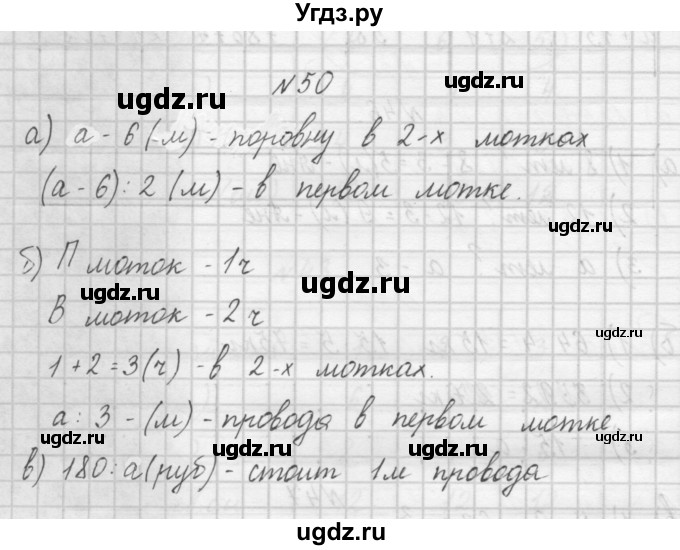 Угдз.ру
ugdz.ru
№50
ugdz.ru
а) а - 6 (м) - поровну в 2-х мотках
ugdz.ru
(а - 6) : 2 (м) - в первом мотке.
ugdz.ru
б) П моток - 1ч
ugdz.ru
В моток - 2 ч
ugdz.ru
1 + 2 = 3 (ч) - в 2-х мотках.
ugdz.ru
а : 3 - (м) - провода в первом мотке.
ugdz.ru
ugdz.ru
в) 180 : а (руб) - стоит 1м провода
ugdz.ru
ugdz.ru
ugdz.ru